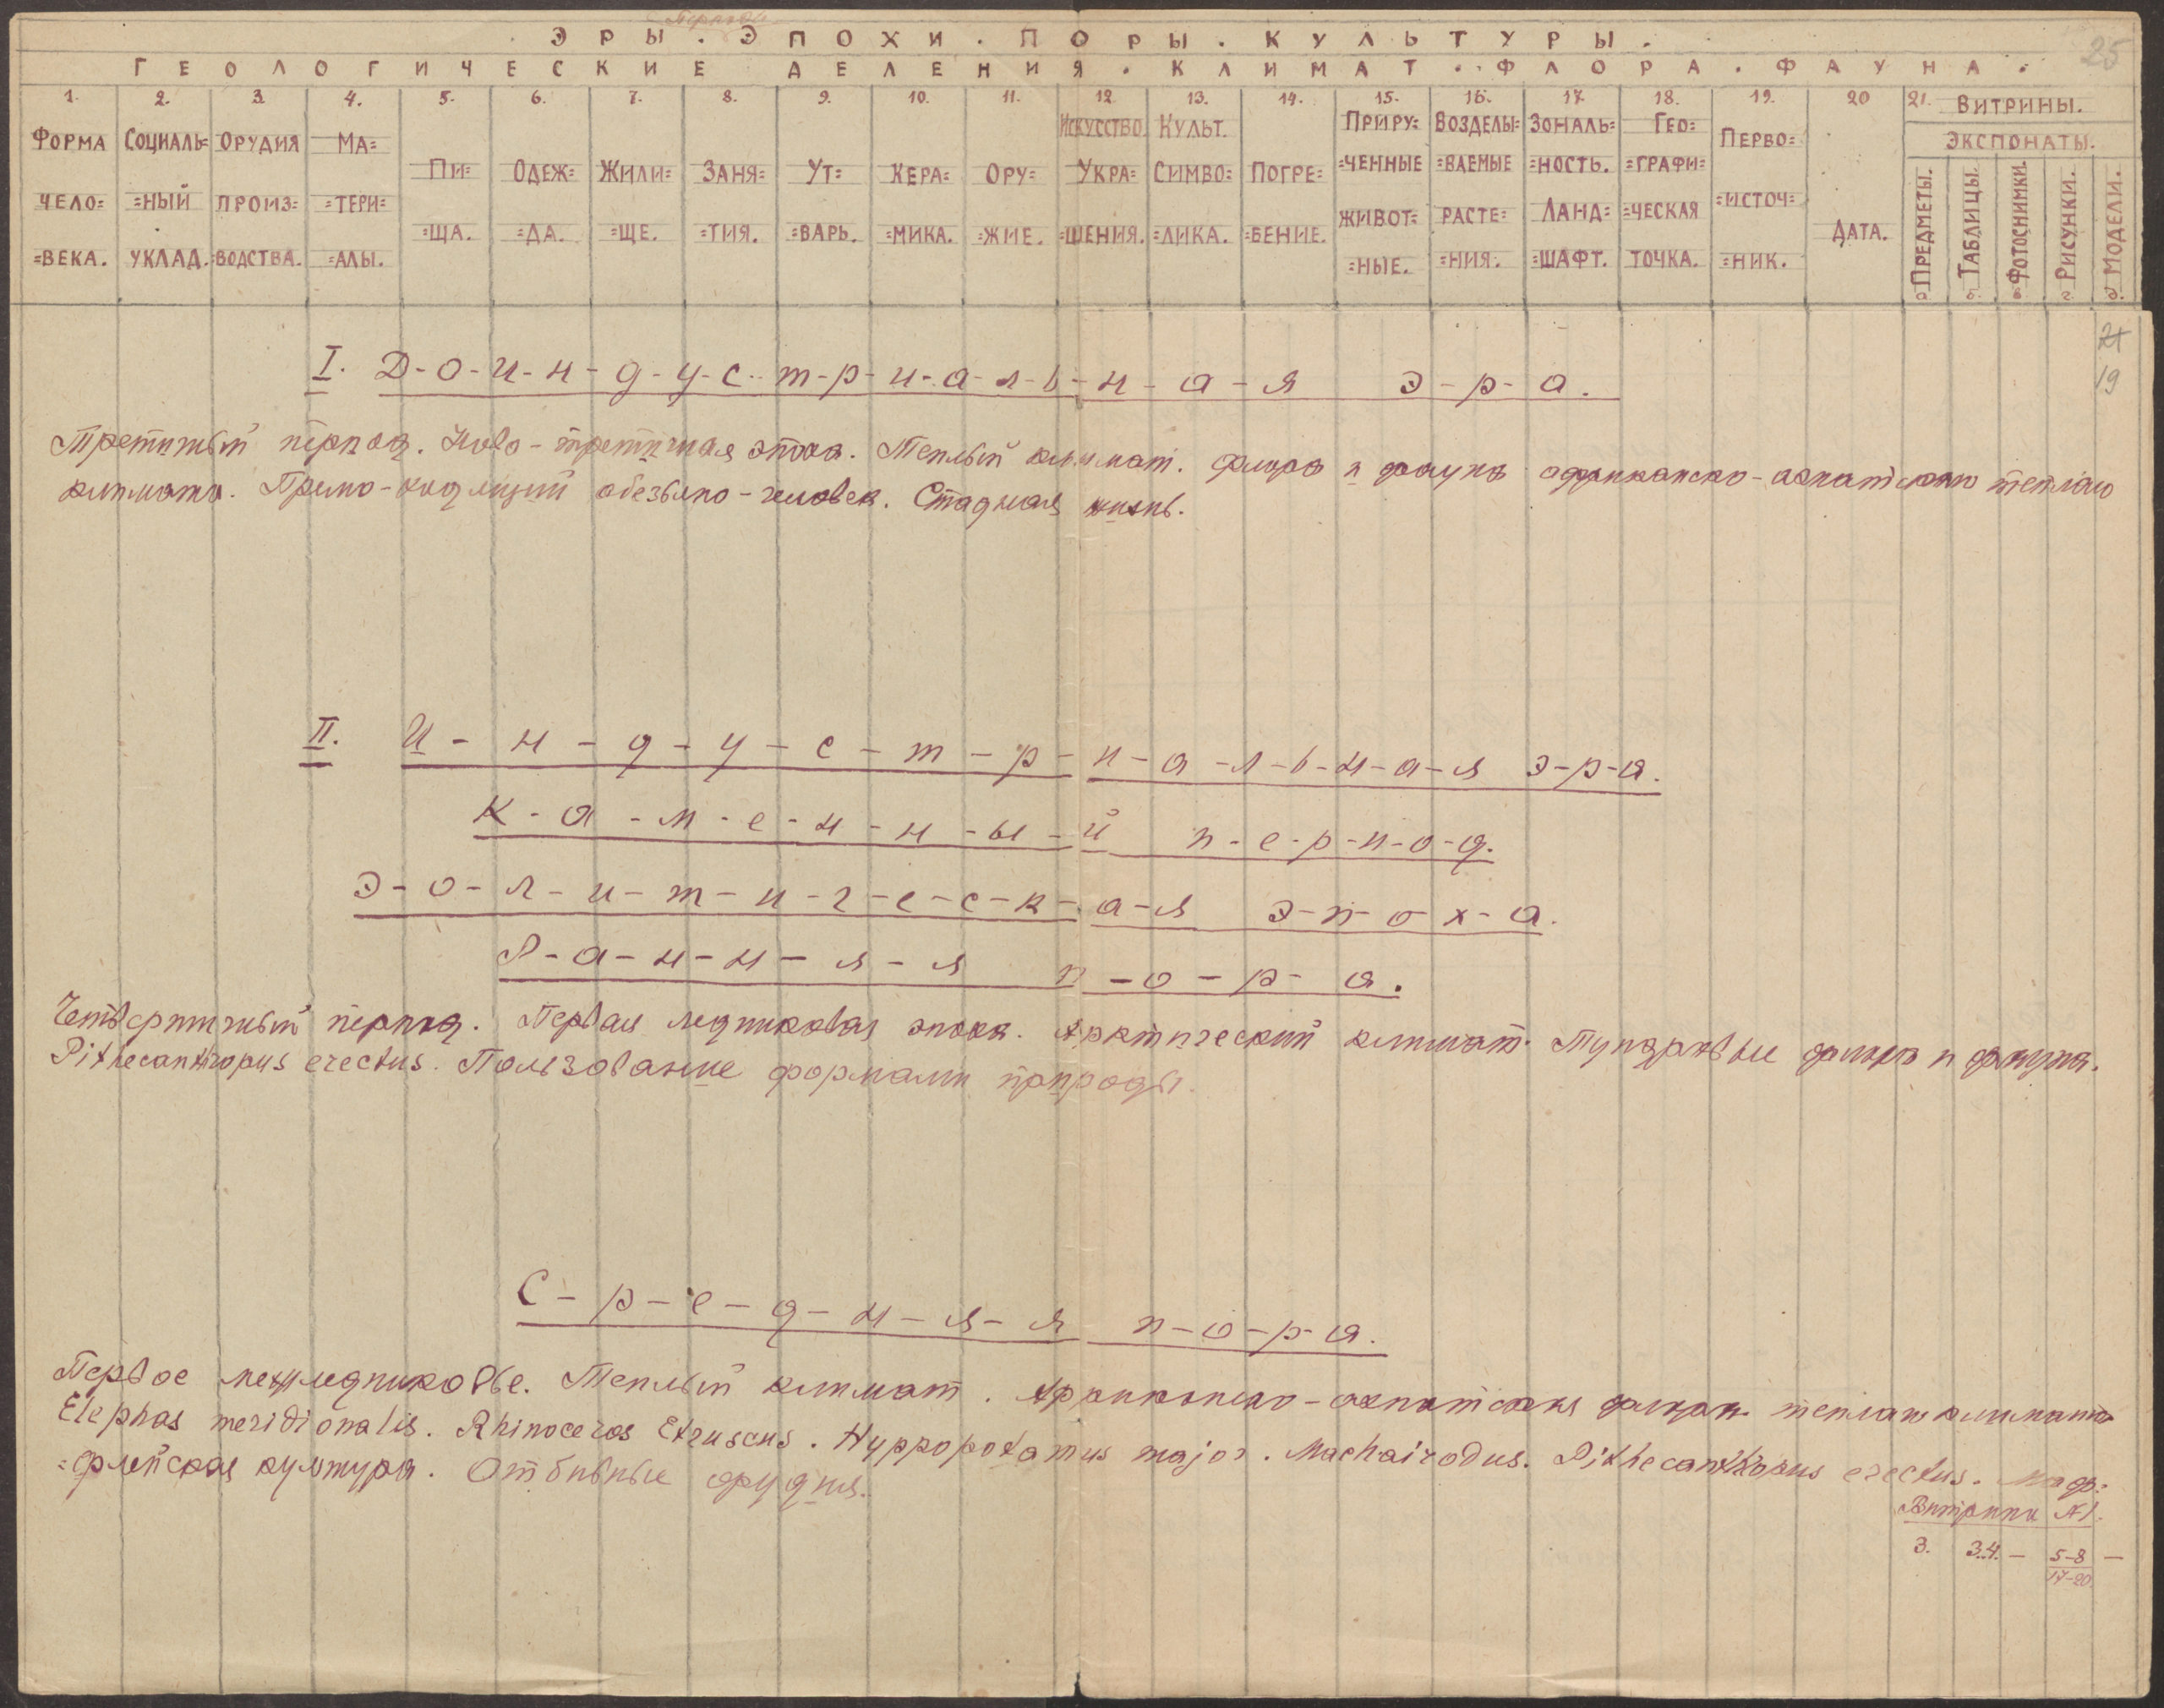 Периоды
ЭРЫ. ЭПОХИ. ПОРЫ. КУЛЬТУРЫ.
25
ГЕОЛОГИЧЕСКИЕ ДЕЛЕНИЯ. КЛИМАТ. ФЛОРА. ФАУНА.
1. 2. 3. 4. 5. 6. 7. 8. 9. 10. 11. 12. 13. 14. 15. 16. 17. 18. 19. 20 21. ВИТРИНЫ.
ЭКСПОНАТЫ.
ФОРМА ЧЕЛО= =ВЕКА.
СОЦИАЛЬ= =НЫЙ УКЛАД.
ОРУДИЯ ПРОИЗ= =ВОДСТВА.
МА= =ТЕРИ= =АЛЫ.
ПИ= =ЩА.
ОДЕЖ= =ДА.
ЖИЛИ= =ЩЕ.
ЗАНЯ= =ТИЯ.
УТ= =ВАРЬ.
КЕРА= =МИКА.
ОРУ= =ЖИЕ.
ИСКУССТВО. УКРА= =ШЕНИЯ.
КУЛЬТ. СИМВО= =ЛИКА.
ПОГРЕ= =БЕНИЕ.
ПРИРУ= =ЧЕННЫЕ ЖИВОТ= =НЫЕ.
ВОЗДЕЛЫ= =ВАЕМЫЕ РАСТЕ= =НИЯ.
ЗОНАЛЬ= =НОСТЬ. ЛАНД= =ШАФТ.
ГЕО= =ГРАФИ= =ЧЕСКАЯ ТОЧКА.
ПЕРВО= =ИСТОЧ= =НИК.
ДАТА.
а. ПРЕДМЕТЫ.
б. ТАБЛИЦЫ.
в. ФОТОСНИМКИ.
г. РИСУНКИ.
д. МОДЕЛИ.
21
19
I. Д-о-и-н-д-у-с-т-р-и-а-л-ь-н-а-я э-р-а.
Третичный период. Ново-третичная эпоха. Теплый климат. Флора и фауна африканско-азиатского теплаго
климата. Прямо-ходящий обезьяно-человек. Стадная жизнь.
II. И-н-д-у-с-т-р-и-а-л-ь-н-а-я э-р-а.
К-а-м-е-н-н-ы-й п-е-р-и-о-д.
Э-о-л-и-т-и-ч-е-с-к-а-я э-п-о-х-а.
Р-а-н-н-я-я п-о-р-а.
Четвертичный период. Первая ледниковая эпоха. Арктический климат. Тундровые флора и фауна.
Pithecanthropus erectus. Пользование формами природы.
С-р-е-д-н-я-я п-о-р-а.
Первое межледниковье. Теплый климат. Африканско-азиатская фауна теплаго климата
Elephas meridionalis. Rhinoceros Etruscus. Hyppopotamus major. Machairodus. Pithecanthropus erectus. Маф=
=флийская культура. Отбивные орудия.
Витрина №1.
3. 3.4. — 5-8 —
17-20.